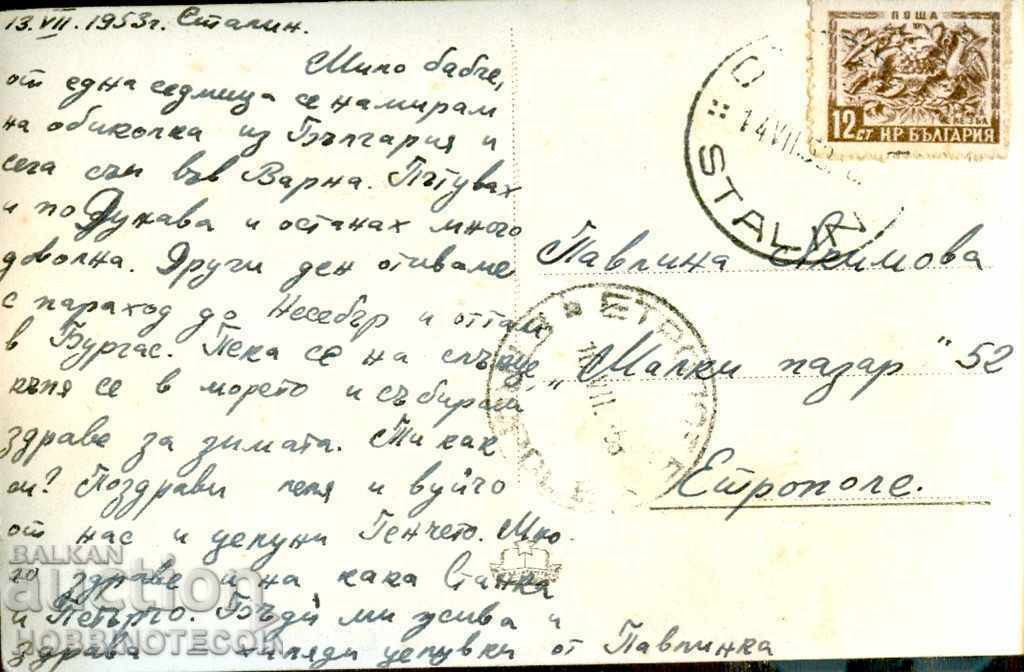 13.VII.1953г. Сталин.
Мило бабче,
от една седмица се намирам
на обиколка из България и
сега съм във Варна. Пътувах
и по Дунава и останах много
доволна. Други ден отиваме
с параход до Несебър и оттам
в Бургас. Пека се на слънце,
къпя се в морето и събирам
здраве за зимата. Ти как
си? Поздрави леля и вуйчо
от нас и целуни Генчето. Мно-
го здраве и на кака Станка
и Петърчо. Бъди ми жива и
здрава хиляди целувки от Павлинка
ПОЩА
12 СТ НР БЪЛГАРИЯ
14 VII
STALIN
Павлина Акимова
„Малки пазар" 52
Етрополе.
VII
BALKAN
auction
HOBBINOTECOR